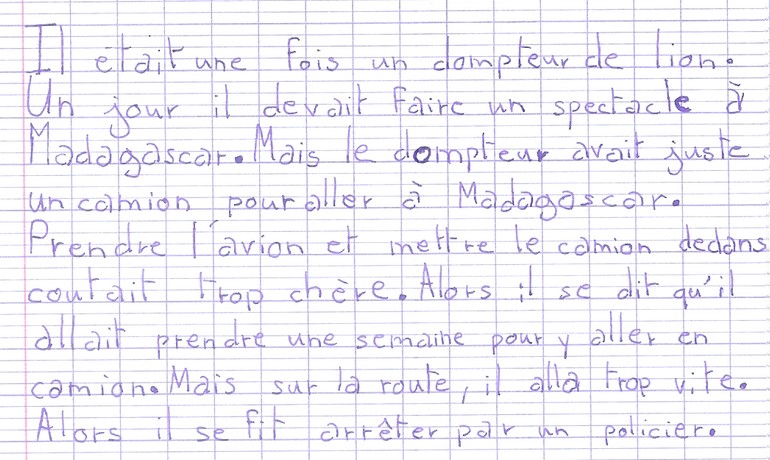 Il était une fois un dompteur de lion.
Un jour il devait faire un spectacle à
Madagascar. Mais le dompteur avait juste
un camion pour aller à Madagascar.
Prendre l'avion et mettre le camion dedans
coutait trop chère. Alors il se dit qu'il
allait prendre une semaine pour y aller en
camion. Mais sur la route, il alla trop vite.
Alors il se fit arrêter par un policier.